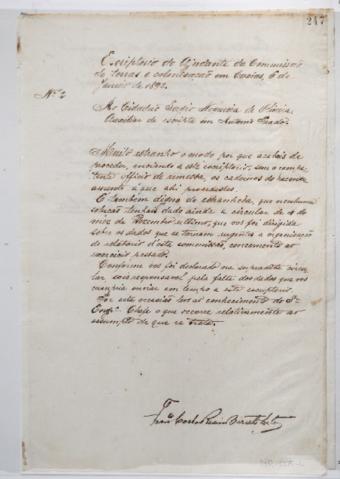 217
Escriptorio do Ajudante da Commissão
de terras e colonisação em Caxias, 6 de
Janeiro de 1892.
Nº 2
Ao Cidadão
Auxiliar de escripta em Antonio Prado.
Muito estranho o modo por que acabais de
proceder, enviando a este escriptorio, sem o compe-
tente officio de remessa, os cadernos do
a que ahi procedestes.
É tambem digno de estranheza, que nenhuma
solução tenhais dado ainda a circular de 4 do
mez de Dezembro ultimo, que vos foi dirigida
sobre os dados que se tornam urgentes a organisação
do relatorio d'esta commissão, concernente ao
exercicio passado.
Conforme vos foi declarado na supradita circu-
lar sois responsavel pela falta dos dados que vos
cumpria enviar em tempo a este escriptorio.
Por esta occasião levo ao conhecimento do Sr.
Engº Chefe o que occorre relativamente ao
assumpto de que se trata.
Barreto Leite